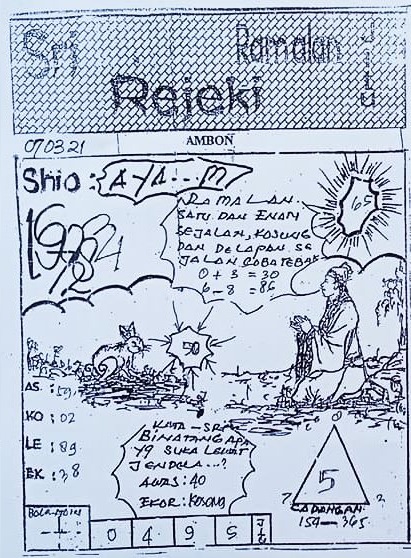 Sri
Ramalan
Jitu
Rejeki
07 03 21
AMBON
Shio : AYA...M
RAMALAN.
SATU DAN ENAM
SEJALAN, KOSONG
DAN DELAPAN SE
JALAN COBA TEBAK
0 + 3 = 30
6 - 8 = 86
65
50
AS :
KO : 02
LE : 89
EK : 38
KATA - SRI
BINATANG APA
Y9 SUKA LEWAT
JENDELA...?
AWAS : 40
EKOR : KOSONG
0
5
7
2
CADANGAN
154 — 365
0 4 9 5